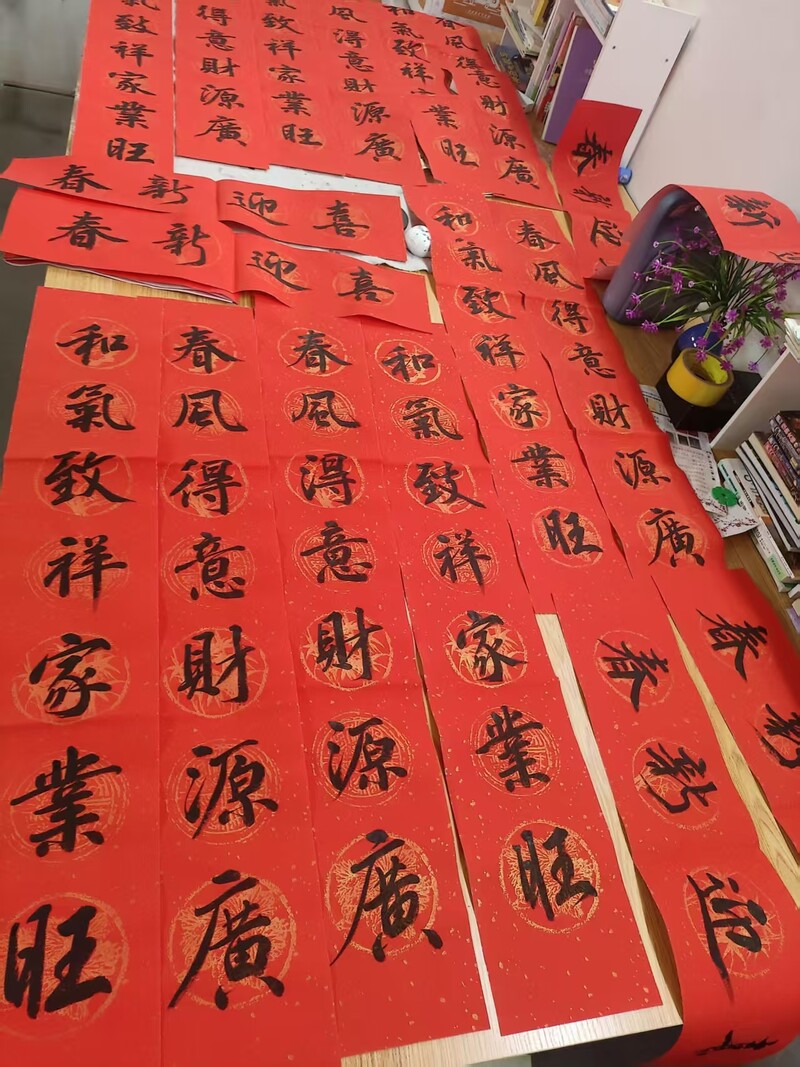 氣致祥家業旺
得意財源廣
氣致祥家業旺
風得意財源廣
和氣致祥
業旺
春風得意財源廣
春新迎喜
春新迎喜
和氣致祥家業旺
春風得意財源廣
春風得意財源廣
和氣致祥家業旺
和氣致祥家業旺
春風得意財源廣
春新迎
春新
春新迎
新迎